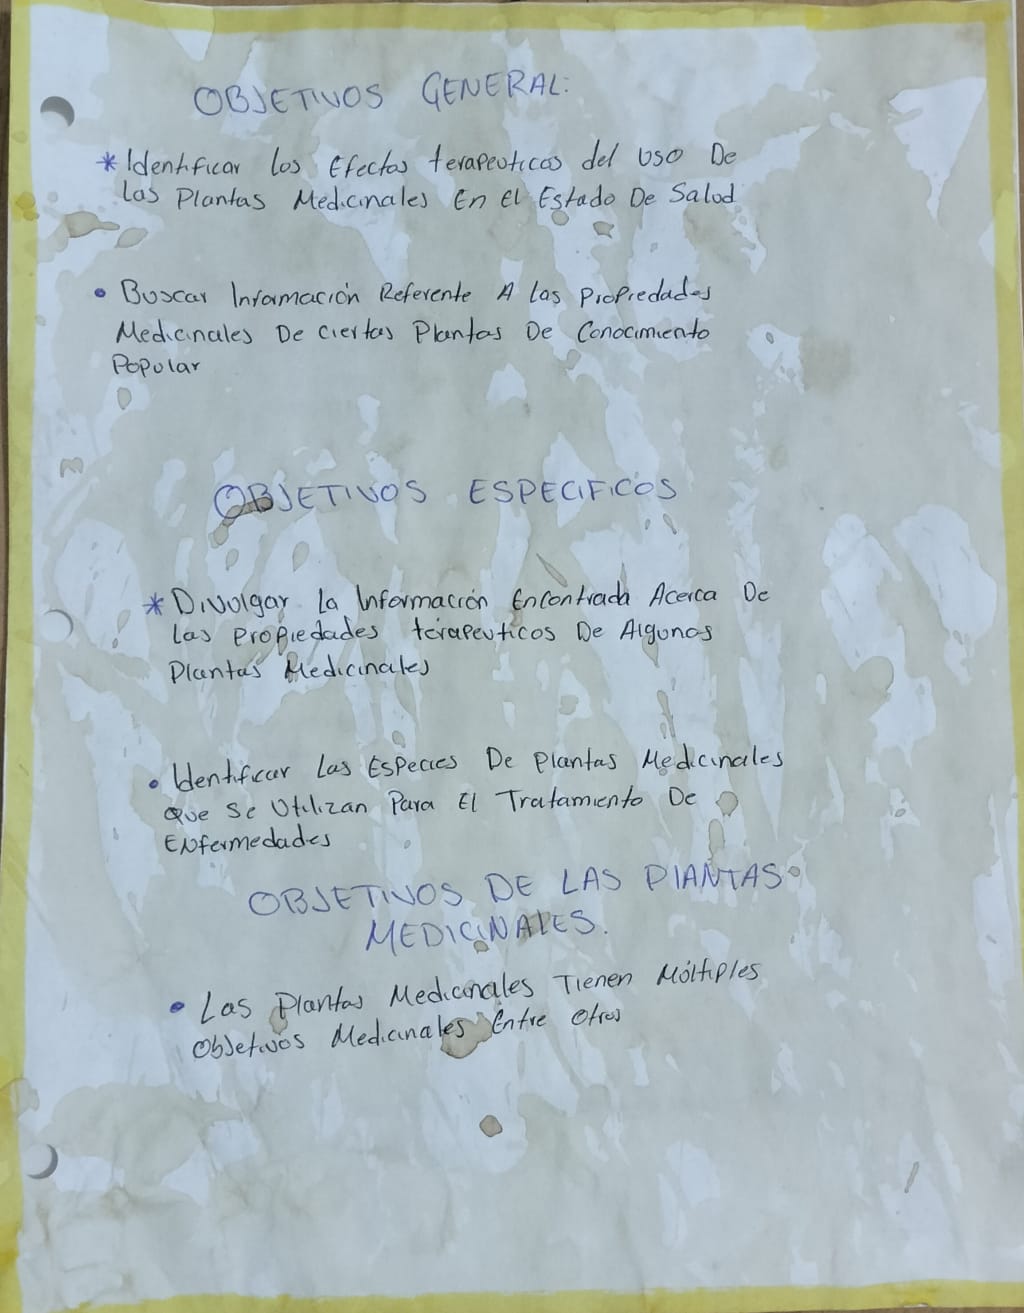 OBJETIVOS GENERAL:
* Identificar los Efectos terapeuticos del uso De
Las Plantas Medicinales En El Estado De Salud
• Buscar Información Referente A las Propiedades
Medicinales De ciertas Plantas De Conocimiento
Popular
OBJETIVOS ESPECIFICOS
* Divulgar La Información Encontrada Acerca De
Las Propiedades terapeuticos De Algunos
Plantas Medicinales
• Identificar Las Especies De Plantas Medicinales
Que Se Utilizan Para El Tratamiento De
Enfermedades
OBJETIVOS DE LAS PLANTAS
MEDICINALES.
• Las Plantas Medicinales Tienen Múltiples
Objetivos Medicinales Entre Otros